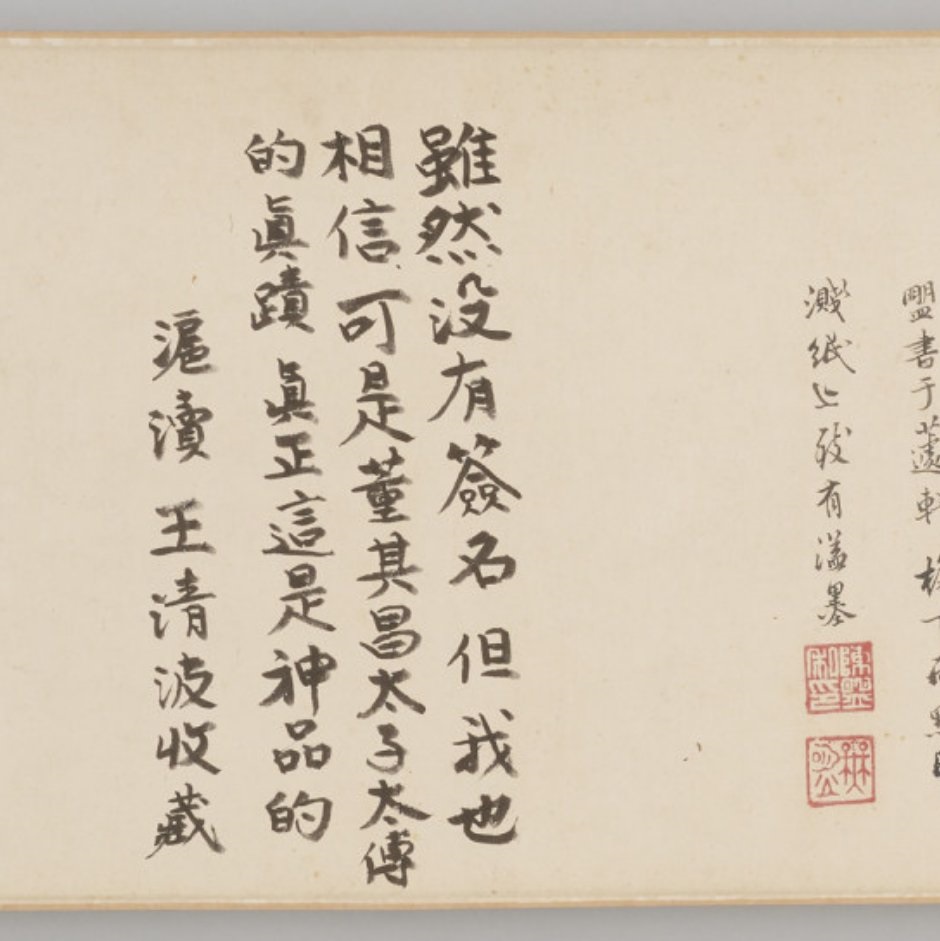 盟書于蘧軒
濺紙上致有溢墨
雖然没有簽名但我也
相信可是董其昌太子太傅
的眞蹟眞正這是神品的
滬瀆王清波收藏